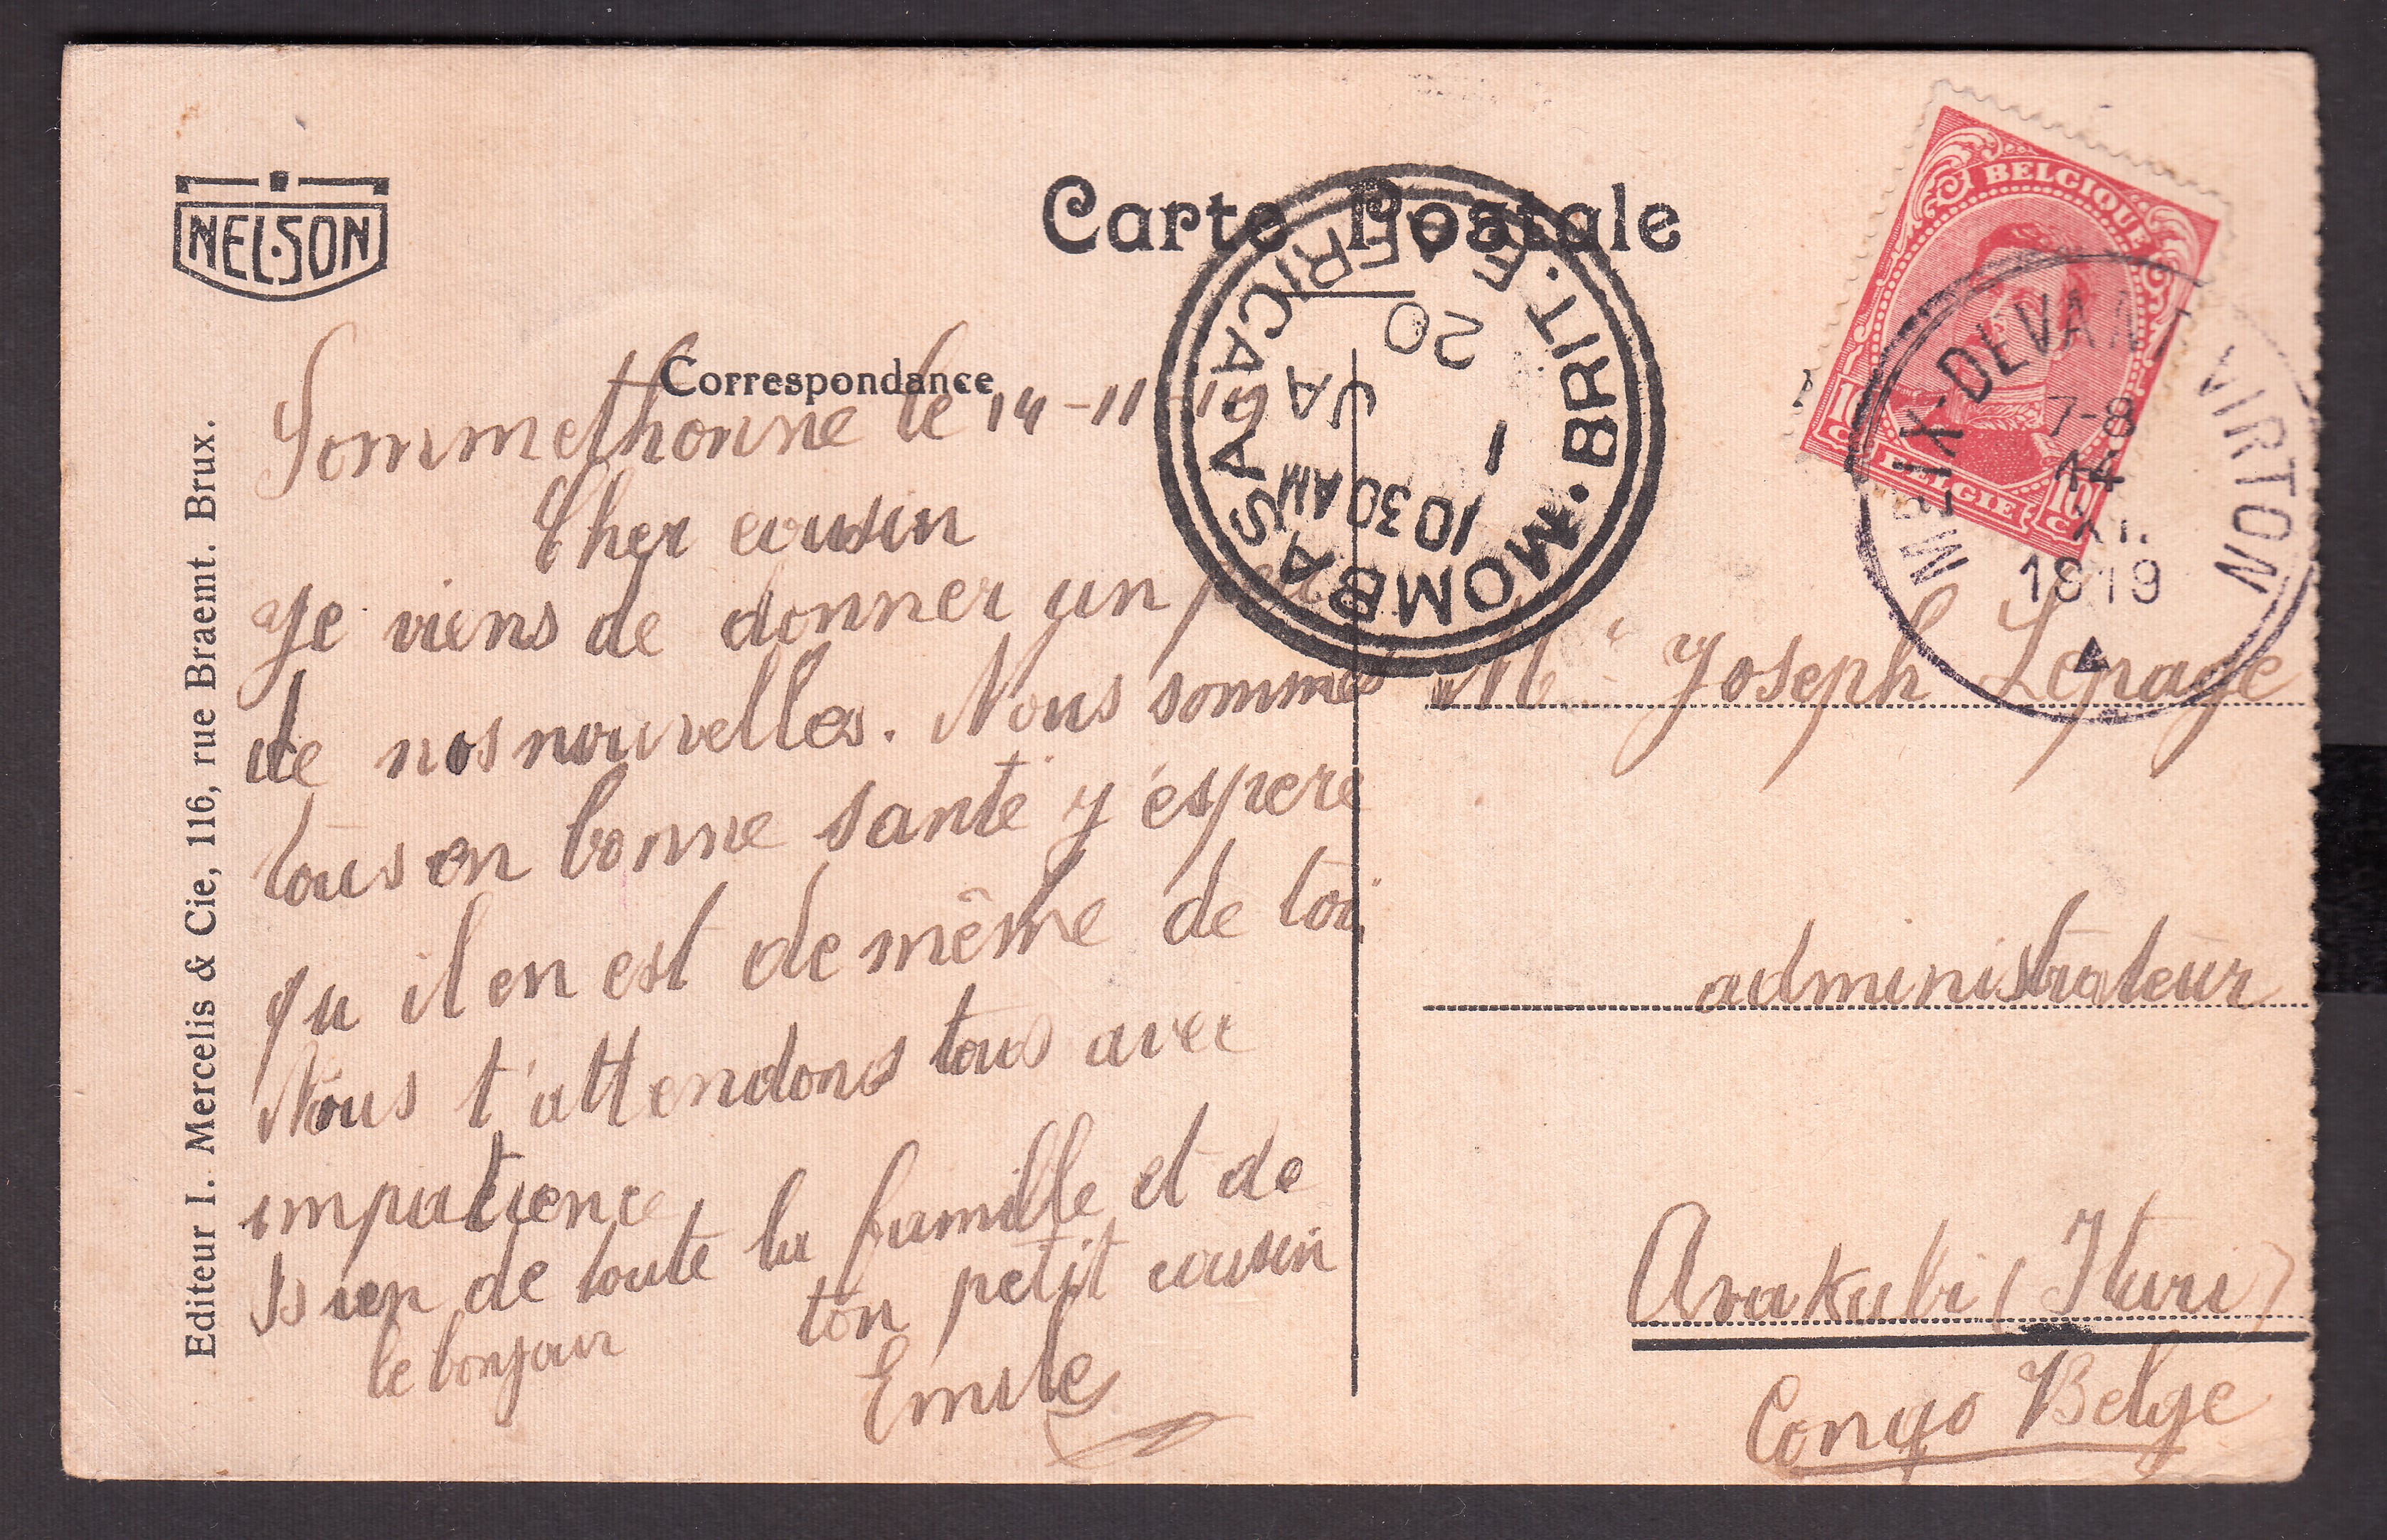 NELSON
Carte Postale
Correspondance
Editeur I. Mercelis & Cie, 116, rue Braemt. Brux.
BELGIQUE
10 c BELGIE 10 c
MEIX-DEVANT VIRTON
7-8
14
XI.
1919
MOMBASA. BRIT. E. AFRICA.
1
10 30 AM
JA
20
Sommethonne le 14-11-19
Cher cousin
Je viens de donner un peu
de nos nouvelles. Nous sommes
tous en bonne santé j'éspere
qu il en est de même de toi,
Nous t'attendons tous avec
impatience
Bien de toute la famille et de
le bonjour ton petit cousin
Emile
Mr Joseph Lepage
administrateur
Avakubi (Ituri)
Congo Belge